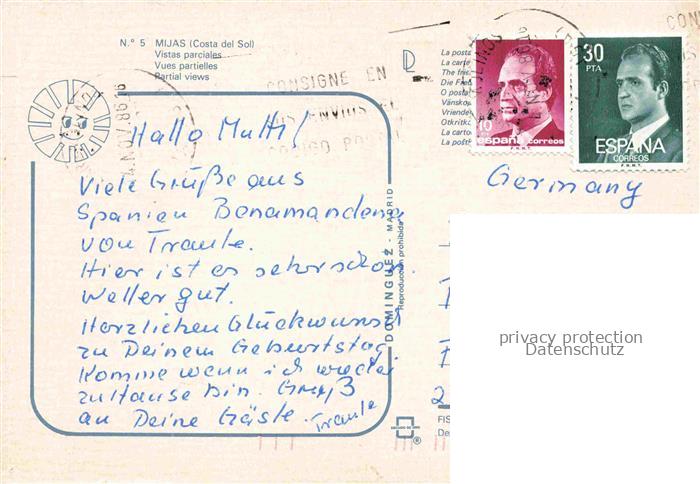 N.º 5 MIJAS (Costa del Sol)
Vistas parciales
Vues partielles
Partial views
La posta
La carte
The fris
Die Fre
O posta
Vänskor
Vriende
Otkritko
La carto
La posta
10
españa correos
F.N.M.T.
30
PTA
ESPAÑA
CORREOS
F.N.M.T.
CONSIGNE EN
SUS ENVIOS EL
CODIGO POSTAL
CON
Hallo Mutti!
Viele Grüße aus
Spanien Benamandena
von Traute.
Hier ist es sehr schön.
Wetter gut.
Herzlichen Glückwunsch
zu Deinem Geburtstag
Komme wenn ich wieder
zuHause bin. Gruß
an Deine Gäste. Traute
Germany
DOMINGUEZ - MADRID
Reproducción prohibida
privacy protection
Datenschutz
2
FIS
De
®